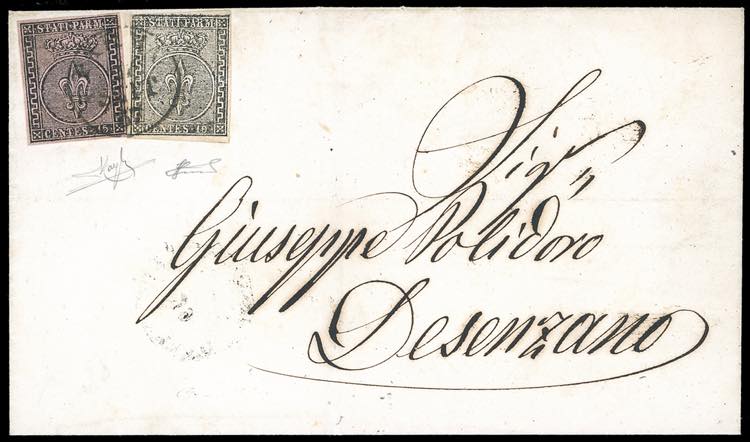 STATI PARM.
CENTES. 15
STATI PARM.
CENTES. 10
Sig.r
Giuseppe Polidoro
Desenzano